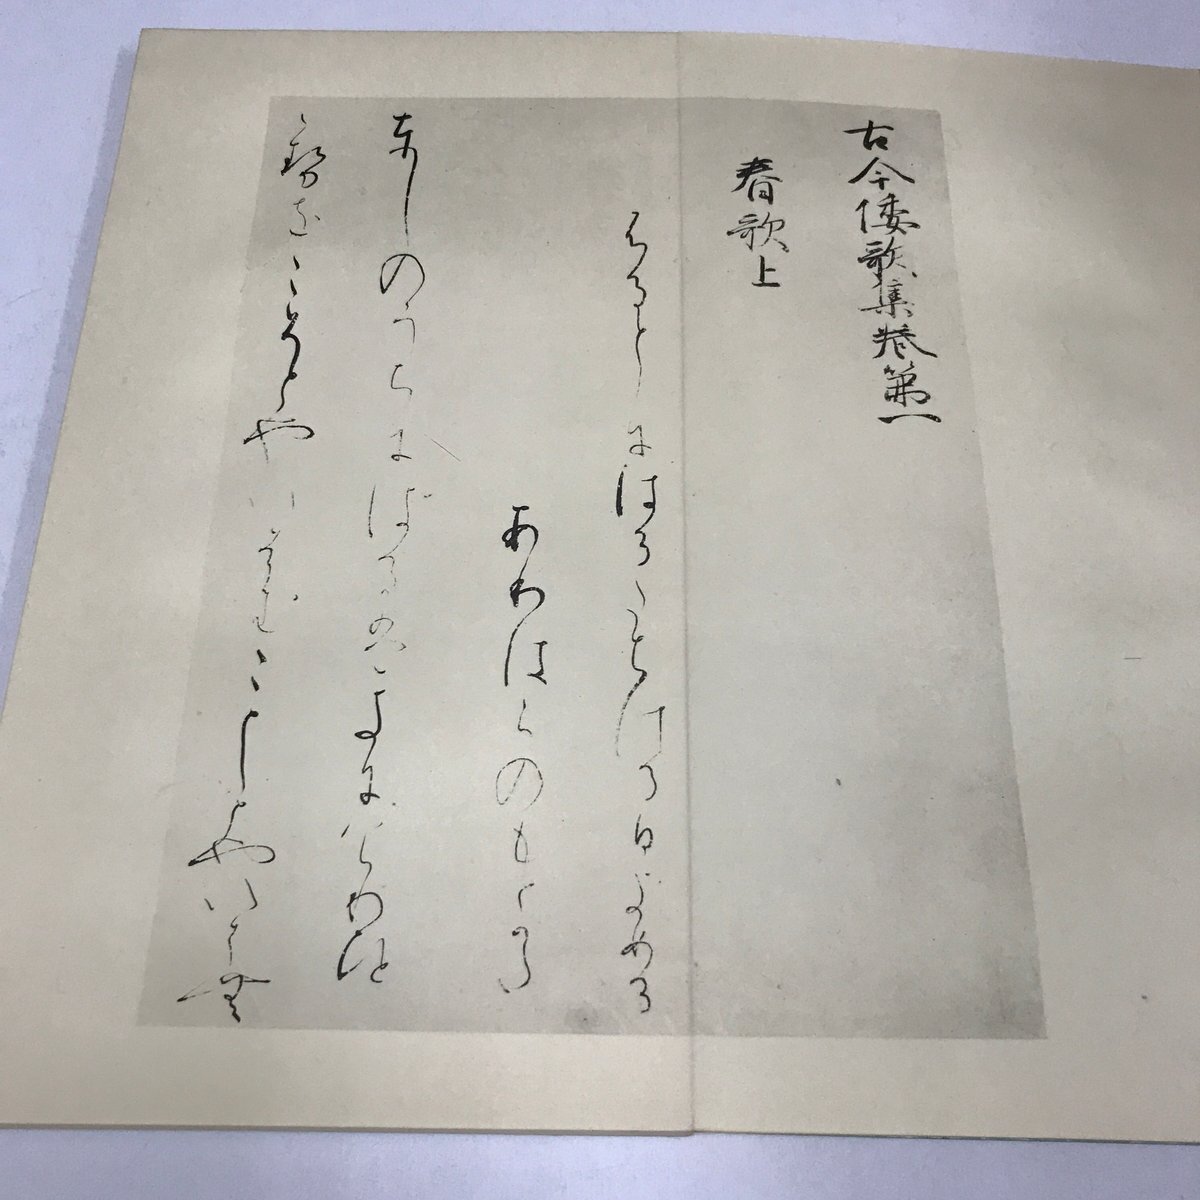 古今倭歌集巻第一
春歌上
ふるとしにはるたてける日よめる
ありはらのもとかた
年のうちにはるはきにけりひとゝ
せをこそとやいはむことしとやいはむ